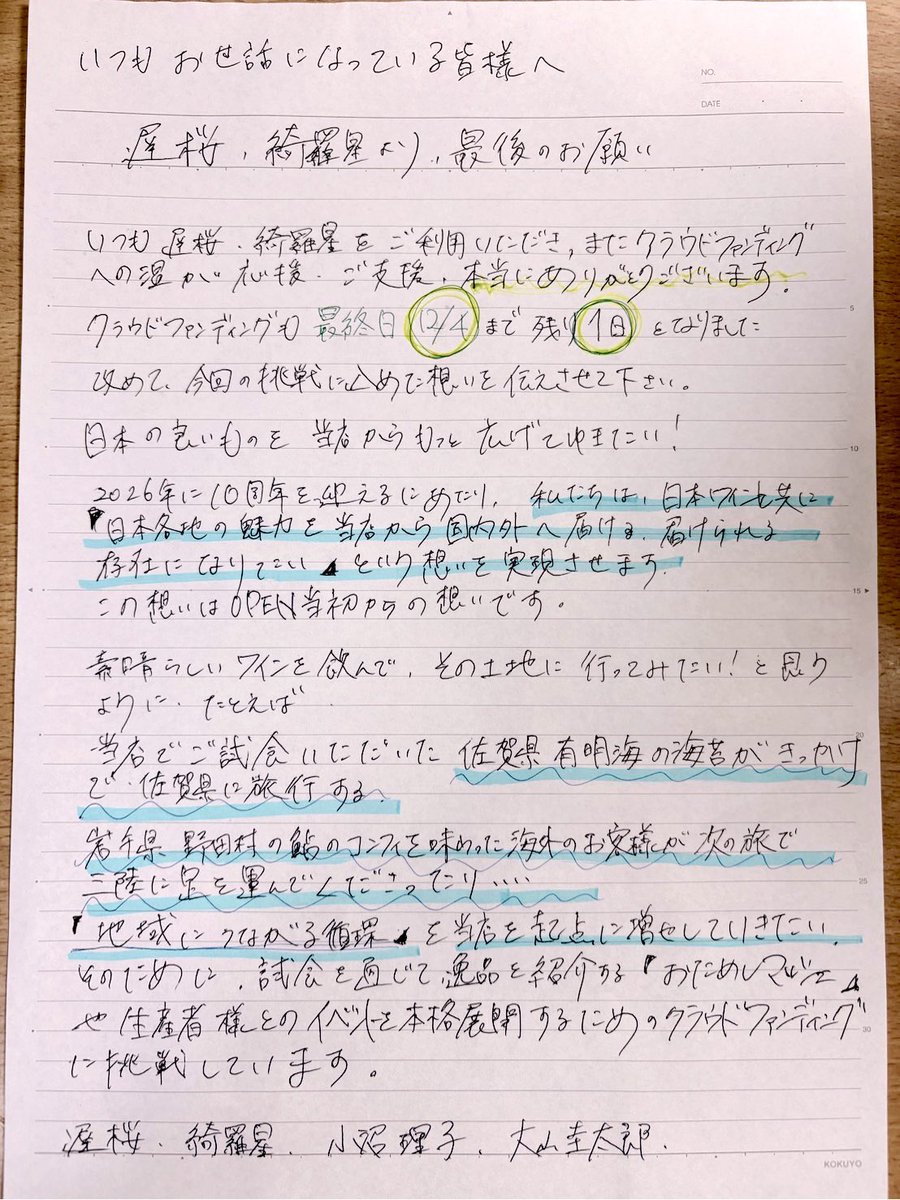 いつもお世話になっている皆様へ
NO.
DATE
遅桜、綺羅星より、最後のお願い
いつも遅桜・綺羅星をご利用いただき、またクラウドファンディング
への温かい応援・ご支援、本当にありがとうございます。
クラウドファンディングも最終日12/4まで残り1日となりました
改めて、今回の挑戦に込めた想いを伝えさせて下さい。
日本の良いものを当店からもっと広げてゆきたい!
2026年に10周年を迎えるにあたり、私たちは、日本ワインと共に
『日本各地の魅力を当店から国内外へ届ける、届けられる
存在になりたい』という想いを実現させます。
この想いはOPEN当初からの想いです。
素晴らしいワインを飲んで、その土地に行ってみたい!と思う
ように、たとえば
当店でご試食いただいた佐賀県有明海の海苔がきっかけ
で、佐賀県に旅行する。
岩手県野田村の鮎のコンフィを味わった海外のお客様が次の旅で
三陸に足を運んでくださったり····
『地域につながる循環』を当店を起点に増やしていきたい。
そのために、試食を通じて逸品を紹介する『おためしマルシェ』
や生産者様とのイベントを本格展開するためのクラウドファンディング
に挑戦しています。
遅桜・綺羅星 小沼理子、大山圭太郎、
KOKUYO
5
10
15
20
25
30